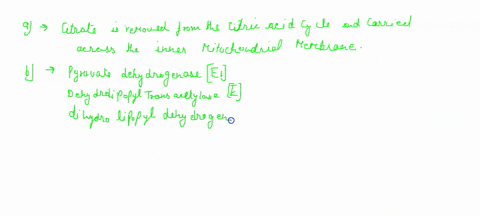 a) → Citrate is removed from the Citric acid Cycle and Carried
across the inner Mitochondrial Membrane.
b] → Pyruvate dehydrogenase [E1]
Dehydrolipoyl Trans acetylase [E]
dihydro lipoyl dehydrogen